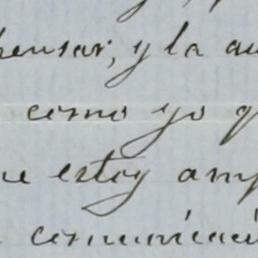 pensar; y la au
como yo q
ue estoy amp
comunicació